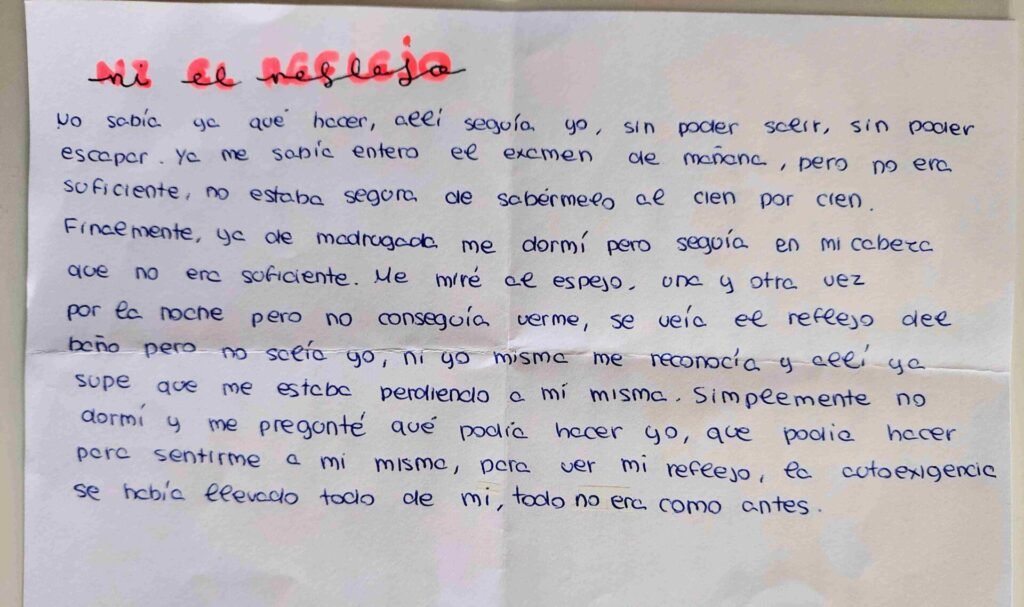 ni el reflejo
No sabía ya qué hacer, allí seguía yo, sin poder salir, sin poder
escapar. Ya me sabía entero el examen de mañana, pero no era
suficiente, no estaba segura de sabérmelo al cien por cien.
Finalmente, ya de madrugada me dormí pero seguía en mi cabeza
que no era suficiente. Me miré al espejo, una y otra vez
por la noche pero no conseguía verme, se veía el reflejo del
baño pero no salía yo, ni yo misma me reconocía y allí ya
supe que me estaba perdiendo a mí misma. Simplemente no
dormí y me pregunté qué podía hacer yo, que podia hacer
para sentirme a mi misma, para ver mi reflejo, la autoexigencia
se había llevado todo de mi, todo no era como antes.